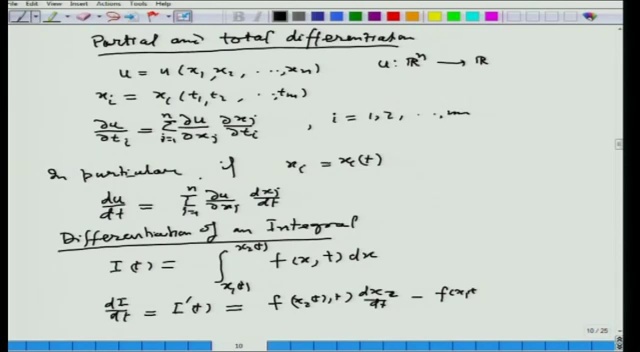 View Insert Actions Tools Help
Partial and total differentiation
u = u(x₁, x₂, ..., xₙ)    u: ℝⁿ → ℝ
xᵢ = xᵢ(t₁, t₂, ..., tₘ)
∂u/∂tᵢ = Σⱼ₌₁ⁿ ∂u/∂xⱼ ∂xⱼ/∂tᵢ , i = 1, 2, ..., m
In particular, if xᵢ = xᵢ(t)
du/dt = Σⱼ₌₁ⁿ ∂u/∂xⱼ dxⱼ/dt
Differentiation of an Integral
I(t) = ∫_{x₁(t)}^{x₂(t)} f(x, t) dx
dI/dt = I'(t) = f(x₂(t), t) dx₂/dt − f(x₁t
10 / 25
10